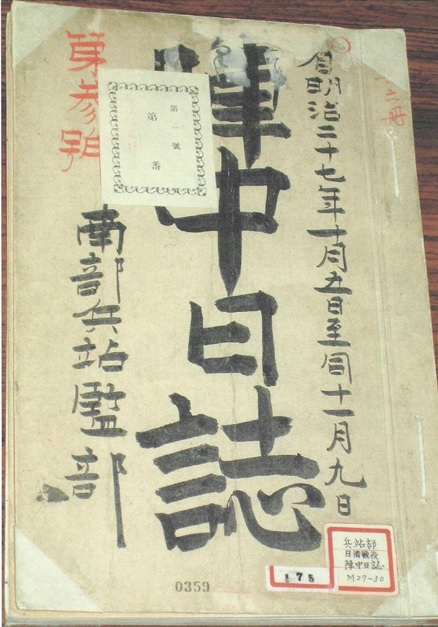 自明治二十七年十月五日至同十一月九日
陣中日誌
南部兵站監部
第参号
第 號
第 番
0359
175
兵站部
日清戦役
陣中日誌
M27-30